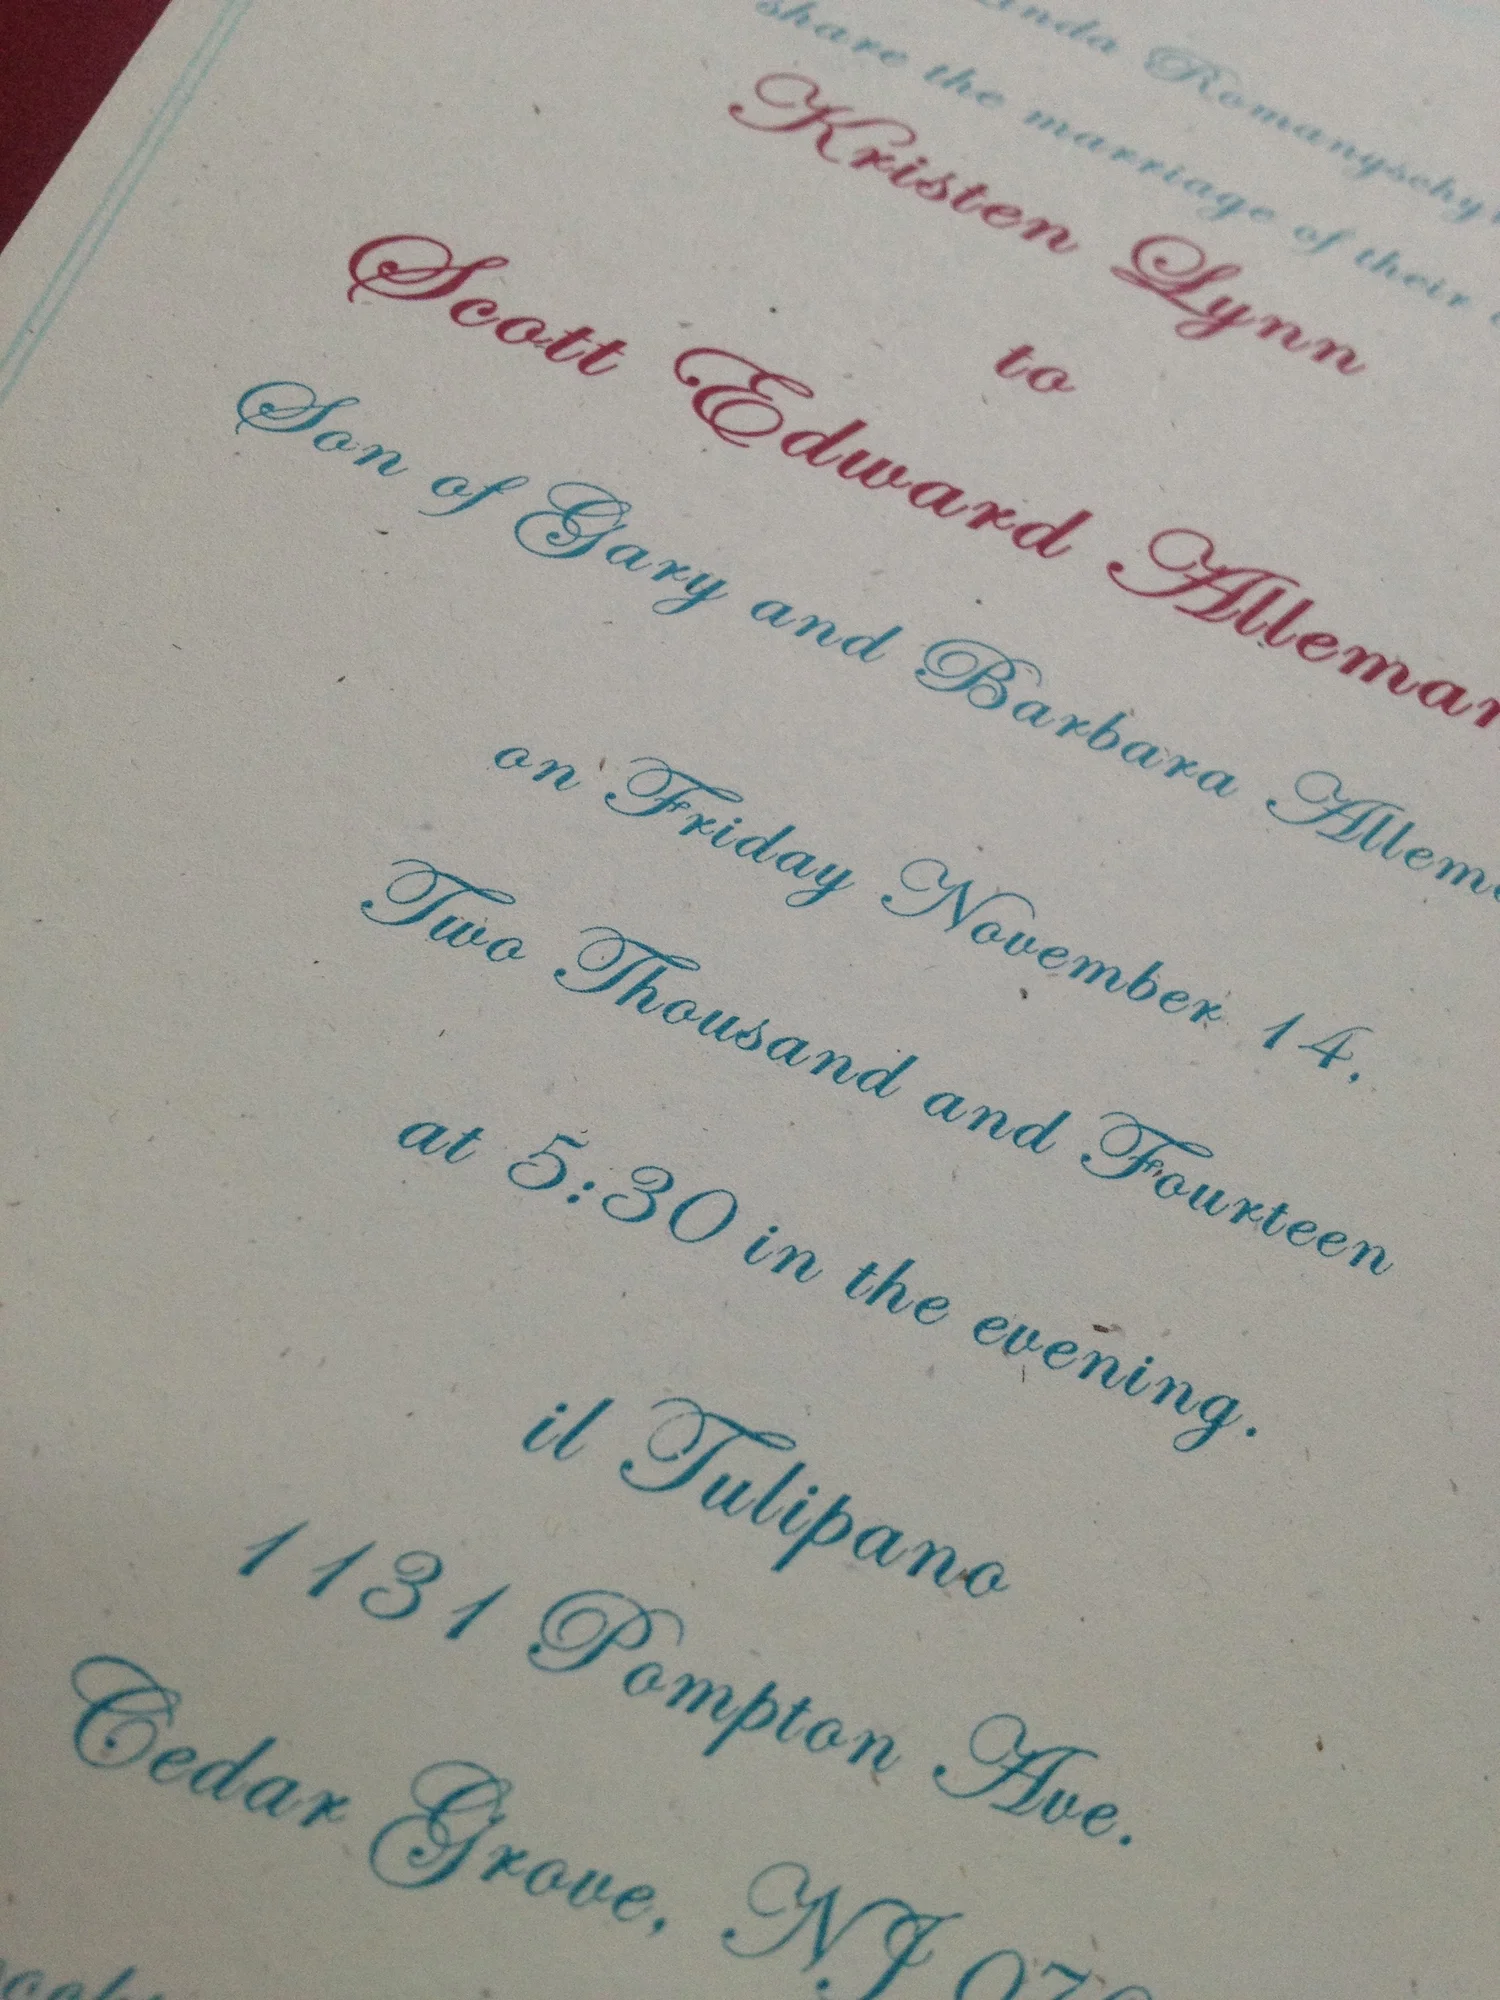 Romanyschy
share the marriage of their
Kristen Lynn
to
Scott Edward Alleman
Son of Gary and Barbara Allem
on Friday November 14,
Two Thousand and Fourteen
at 5:30 in the evening.
il Tulipano
1131 Pompton Ave.
Cedar Grove, NJ 07